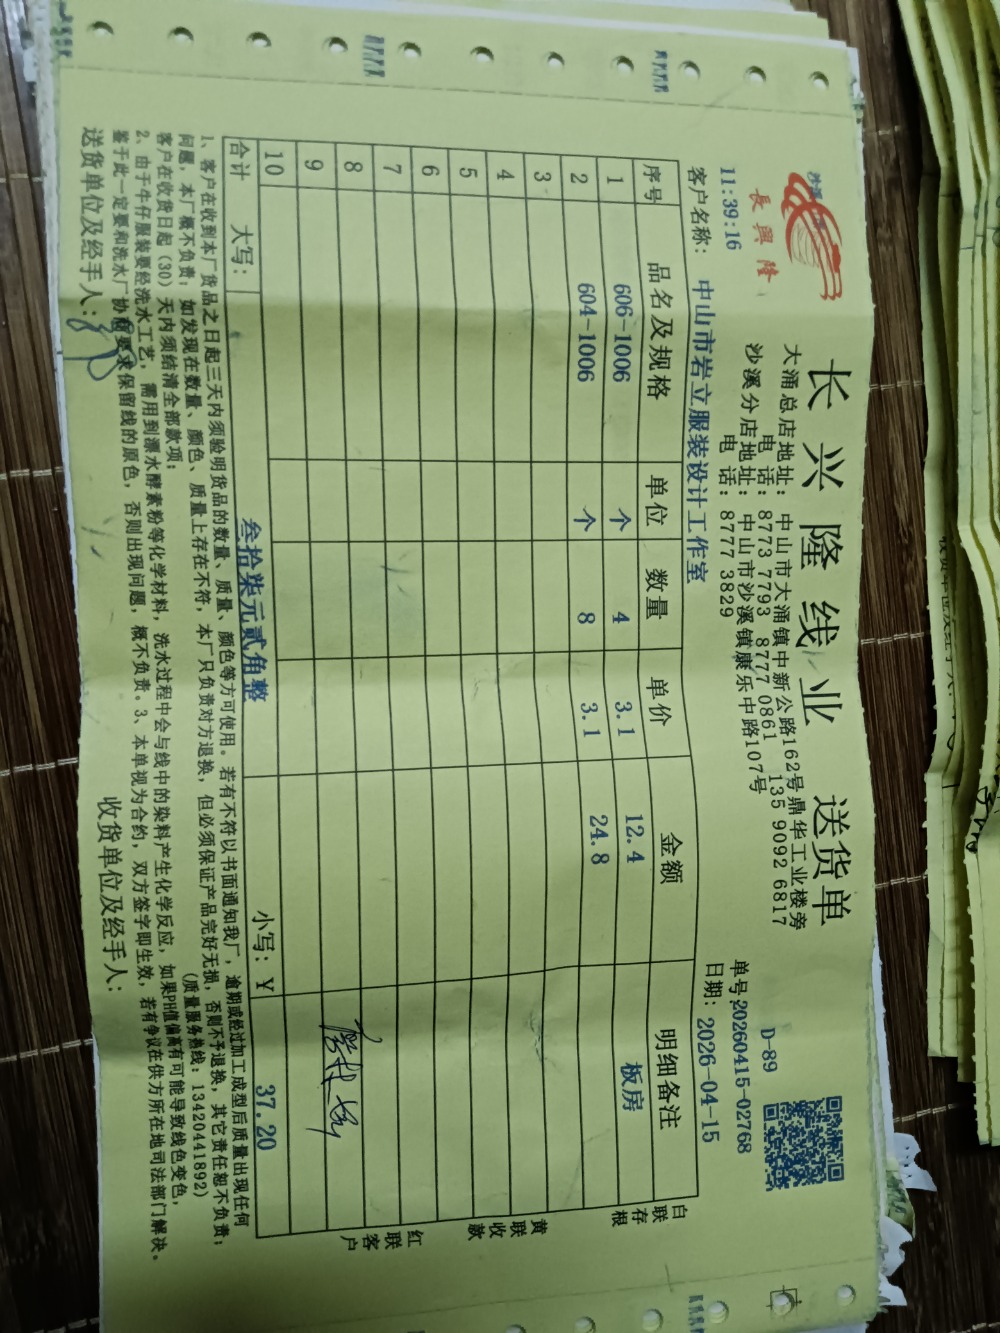 長興隆
长兴隆线业 送货单
D-89
大涌总店地址: 中山市大涌镇中新公路162号鼎华工业楼旁
电 话: 8773 7793 8777 0861 135 9092 6817
沙溪分店地址: 中山市沙溪镇康乐中路107号
电 话: 8777 3829
单号:20260415-02768
11:39:16
日期: 2026-04-15
客户名称: 中山市岩立服装设计工作室
序号 品名及规格 单位 数量 单价 金额 明细备注
1 606-1006 个 4 3.1 12.4 板房
2 604-1006 个 8 3.1 24.8
3
4
5
6
7
8
9
10
合计 大写: 叁拾柒元贰角整 小写: Y 37.20
白联存根
黄联收款
红联客户
1、客户在收到本厂货品之日起三天内须验明货品的数量、质量、颜色等方可使用。若有不符以书面通知我厂,逾期或经过加工成型后质量出现任何
问题,本厂概不负责;如发现在数量、颜色、质量上存在不符,本厂只负责对方退换,但必须保证产品完好无损,否则不予退换,其它责任恕不负责;
客户在收货日起(30)天内须结清全部款项; (质量服务热线: 13420441892)
2、由于牛仔服装要经洗水工艺,需用到漂水酵素粉等化学材料,洗水过程中会与线中的染料产生化学反应,如果PH值偏高有可能导致线色变色,
鉴于此一定要和洗水厂协商要求保留线的原色,否则出现问题,概不负责。3、本单视为合约,双方签字即生效,若有争议在供方所在地司法部门解决。
送货单位及经手人: 收货单位及经手人: